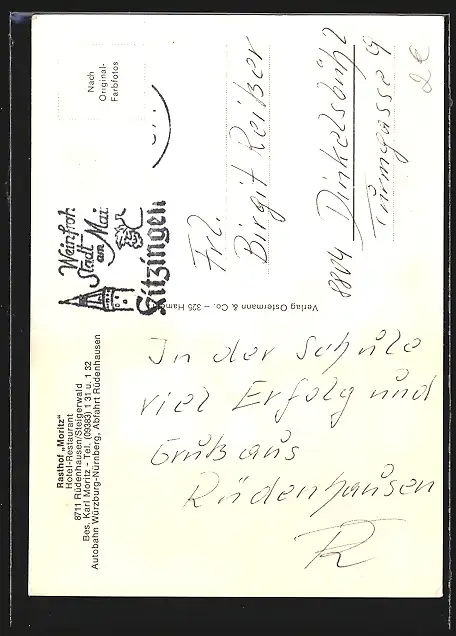 Rasthof „Moritz"
Hotel-Restaurant
8711 Rüdenhausen/Steigerwald
Bes. Karl Moritz - Tel. (09383) 1 31 u. 1 32
Autobahn Würzburg-Nürnberg, Abfahrt Rüdenhausen
Weinfroh
Stadt
am Main
Kitzingen
Nach
Original-
Farbfotos
In der Schule
viel Erfolg und
Gruß aus
Rüdenhausen
R
Verlag Ostermann & Co. – 325 Hameln
Frl.
Birgit Reißer
8804 Dinkelsbühl 2
Turmgasse 9
2€